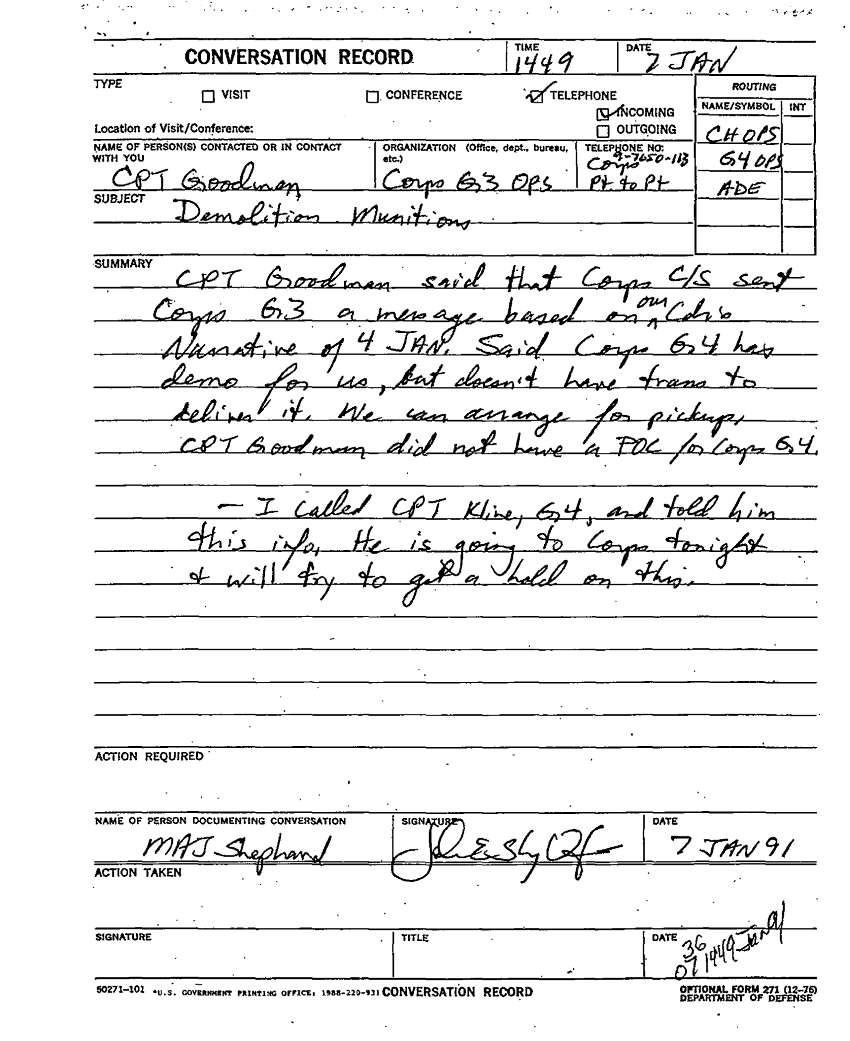 CONVERSATION RECORD
TIME
1449
DATE
7 JAN
TYPE
VISIT
CONFERENCE
TELEPHONE
INCOMING
OUTGOING
ROUTING
NAME/SYMBOL INT
CHOPS
G4 OPS
ADE
Location of Visit/Conference:
NAME OF PERSON(S) CONTACTED OR IN CONTACT
WITH YOU
CPT Goodman
ORGANIZATION (Office, dept., bureau,
etc.)
Corps G3 OPS
TELEPHONE NO:
Corps
Pt to Pt
SUBJECT
Demolition Munitions
SUMMARY
CPT Goodman said that Corps C/S sent
Corps G3 a message based on our Cdr's
Narrative of 4 JAN. Said Corps G4 has
demo for us, but doesn't have trans to
deliver it. We can arrange for pickup,
CPT Goodman did not have a POC for Corps G4.
- I called CPT Kline, G4, and told him
this info. He is going to Corps tonight
& will try to get a hold on this.
ACTION REQUIRED
NAME OF PERSON DOCUMENTING CONVERSATION
MAJ Shephard
SIGNATURE
DATE
7 JAN 91
ACTION TAKEN
SIGNATURE
TITLE
DATE
36
071449 Jan 91
50271-101 *U.S. GOVERNMENT PRINTING OFFICE: 1988-220-931 CONVERSATION RECORD
OPTIONAL FORM 271 (12-76)
DEPARTMENT OF DEFENSE